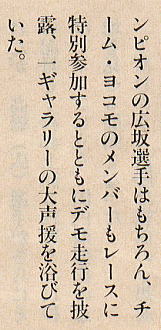 ンピオンの広坂選手はもちろん、チ
ーム・ヨコモのメンバーもレースに
特別参加するとともにデモ走行を披
露、一ギャラリーの大声援を浴びて
いた。